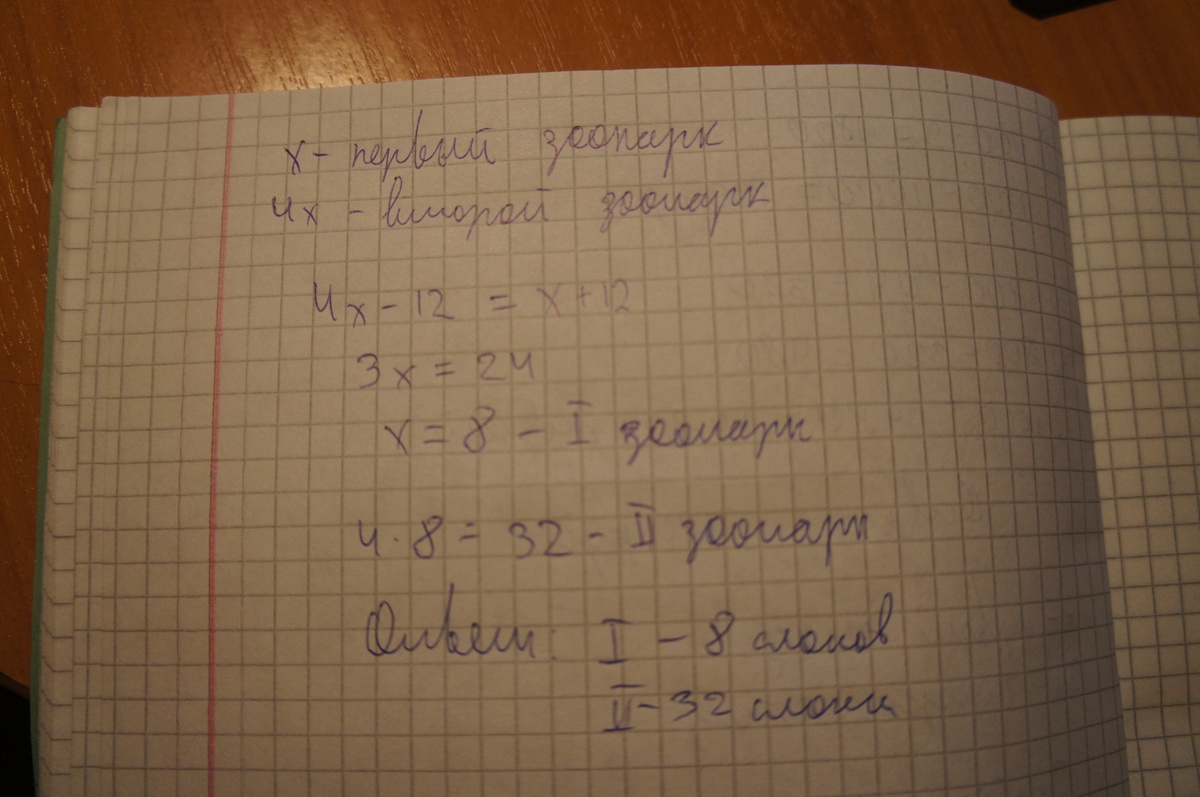 x - первый зоопарк
4x - второй зоопарк
4x - 12 = x + 12
3x = 24
x = 8 - I зоопарк
4 · 8 = 32 - II зоопарк
Ответ: I - 8 слонов
II - 32 слона